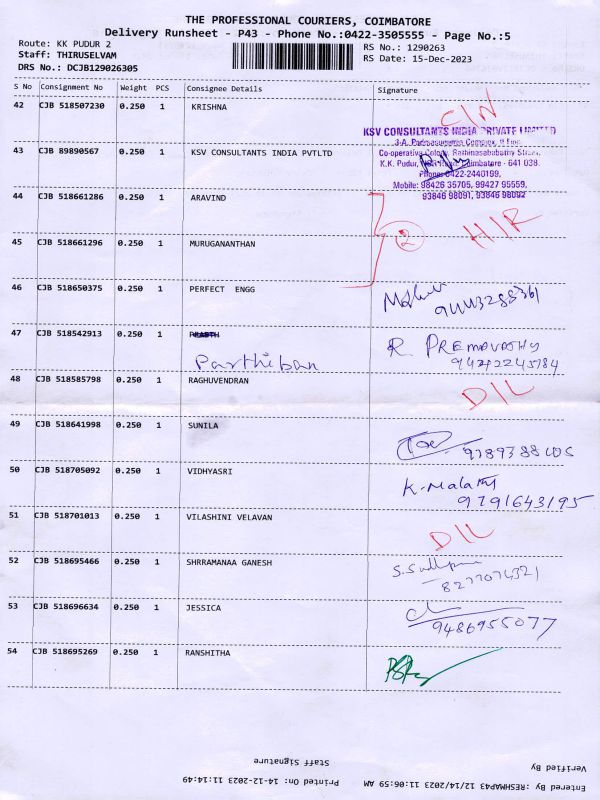 THE PROFESSIONAL COURIERS, COIMBATORE
Delivery Runsheet - P43 - Phone No.:0422-3505555 - Page No.:5
Route: KK PUDUR 2 RS No.: 1290263
Staff: THIRUSELVAM RS Date: 15-Dec-2023
DRS No.: DCJB129026305
S No Consignment No Weight PCS Consignee Details Signature
42 CJB 518507230 0.250 1 KRISHNA CIN
KSV CONSULTANTS INDIA PRIVATE LIMITED
43 CJB 89890567 0.250 1 KSV CONSULTANTS INDIA PVTLTD
Co-operative Colony, Rathinasabapathy Street,
K.K. Pudur, Coimbatore - 641 038.
Phone: 0422-2440199,
Mobile: 98426 35705, 99427 95559,
93646 98091, 93646 98092
44 CJB 518661286 0.250 1 ARAVIND
2 HIR
45 CJB 518661296 0.250 1 MURUGANANTHAN
46 CJB 518650375 0.250 1 PERFECT ENGG
47 CJB 518542913 0.250 1 R. PREMAVATHY
Parthiban
48 CJB 518585798 0.250 1 RAGHUVENDRAN DIL
49 CJB 518641998 0.250 1 SUNILA
50 CJB 518705092 0.250 1 VIDHYASRI K. Malathy
9791643195
51 CJB 518701013 0.250 1 VILASHINI VELAVAN DIL
52 CJB 518695466 0.250 1 SHRRAMANAA GANESH
53 CJB 518696634 0.250 1 JESSICA
9486955077
54 CJB 518695269 0.250 1 RANSHITHA
Staff Signature
Verified By
Printed On: 14-12-2023 11:14:49
Entered By :RESHMAP43 12/14/2023 11:06:59 AM